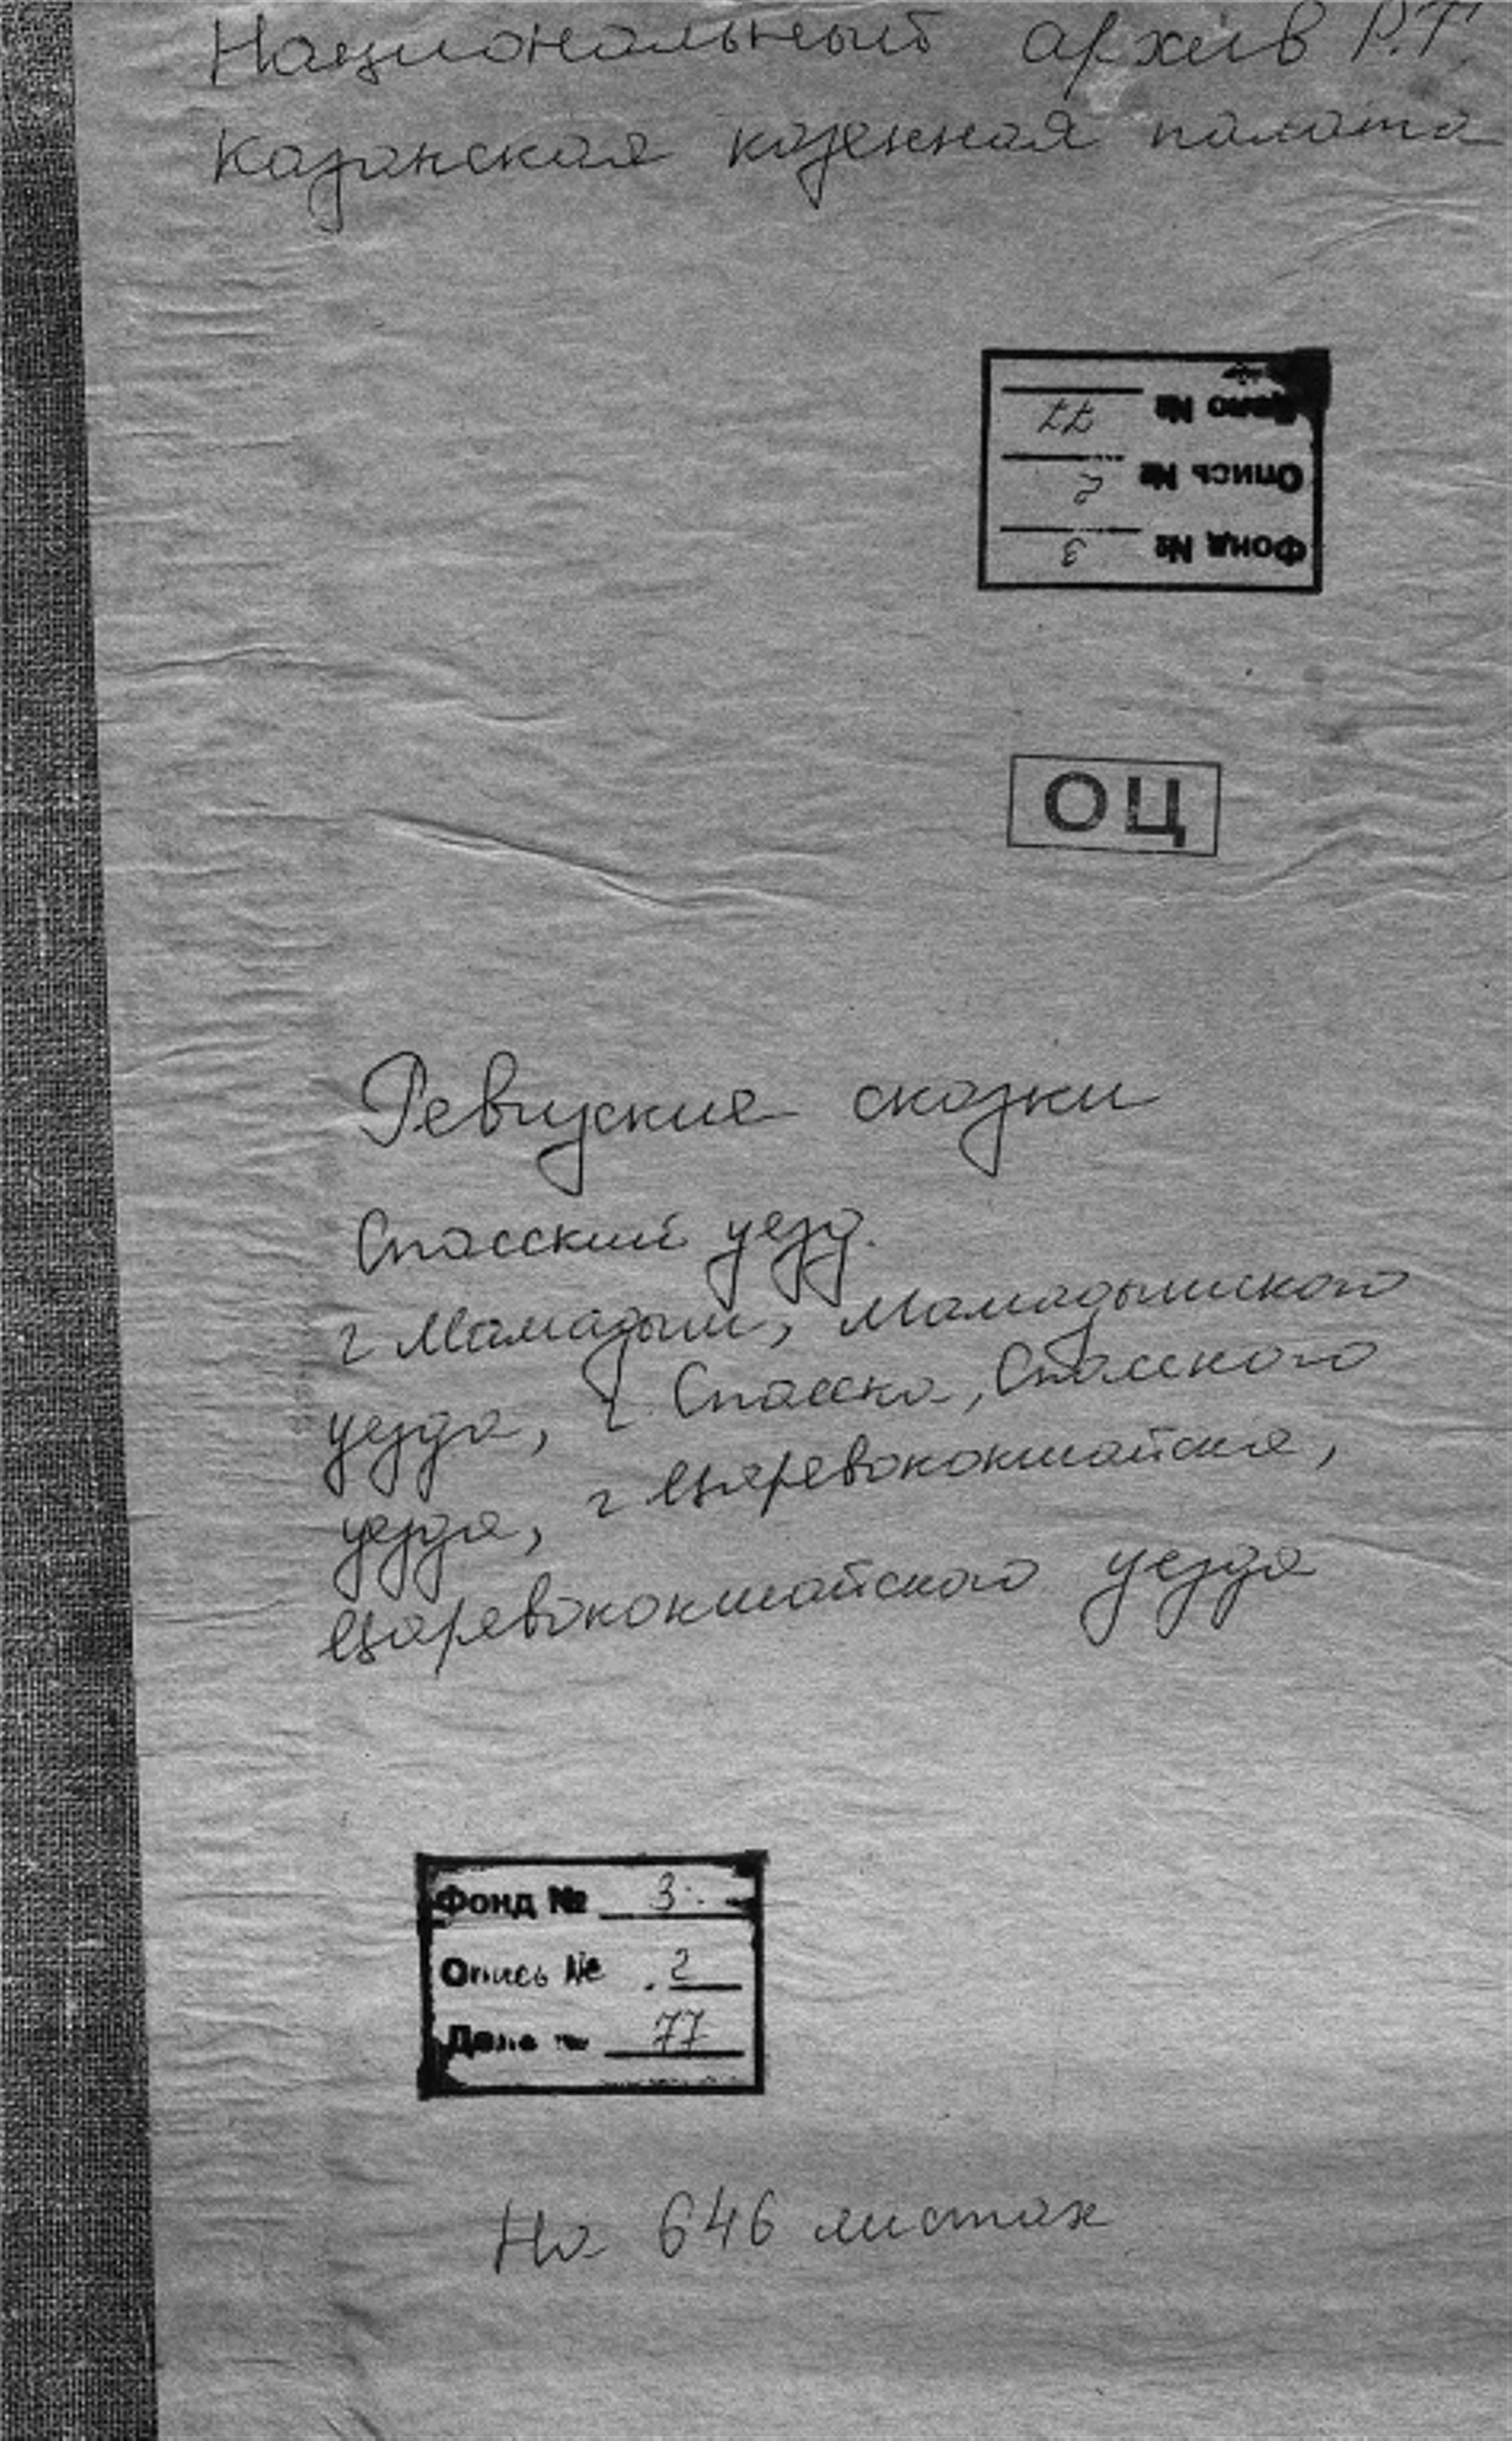 Национальный архив Р.Т.
Казанская казенная палата
Дело № 77
Опись № 2
Фонд № 3
ОЦ
Ревизские сказки
Спасский уезд.
г Мамадыш, Мамадышского
уезда, г. Спасска, Спасского
уезда, г Царевококшайска,
Царевококшайского уезда
Фонд № 3
Опись № 2
Дело № 77
На 646 листах